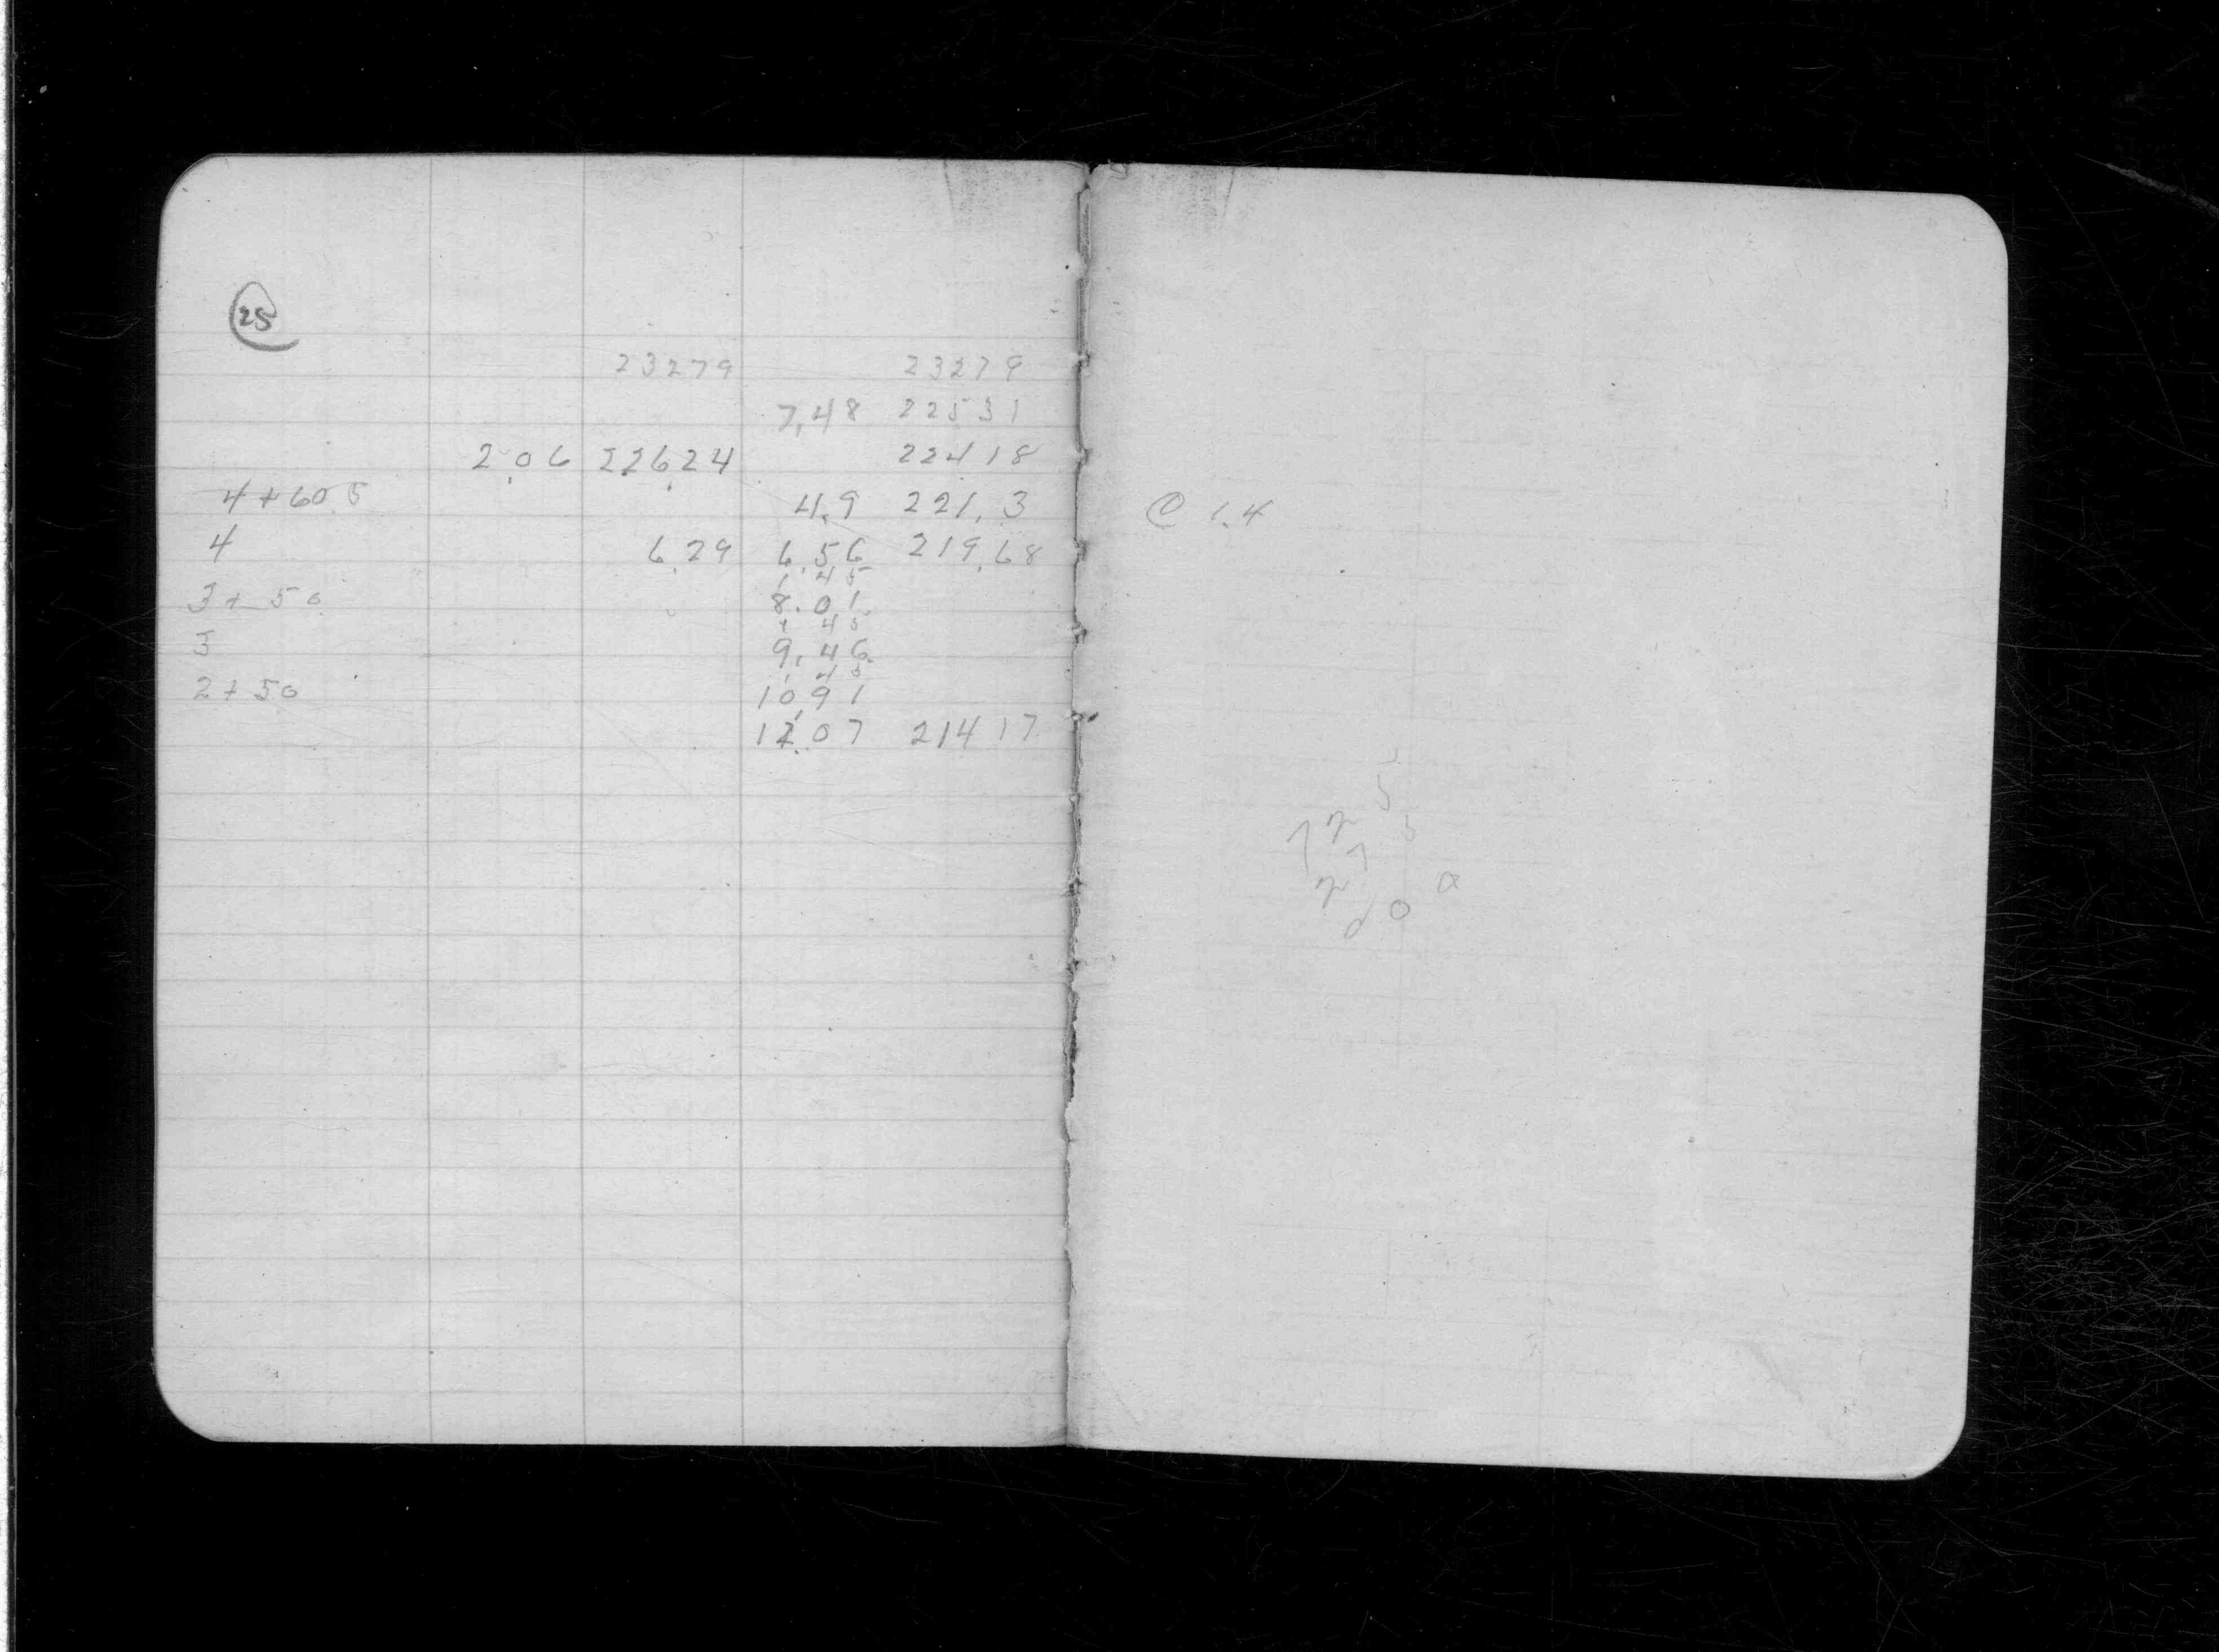 25
23279 23279
7,48 22531
2.06 22624 22418
4+60.5 4.9 221.3 @ 1.4
4 6.29 6.56 219.68
1 45
3+50 8.01
1 45
3 9.46
1 45
2+50 10.91
12.07 21417